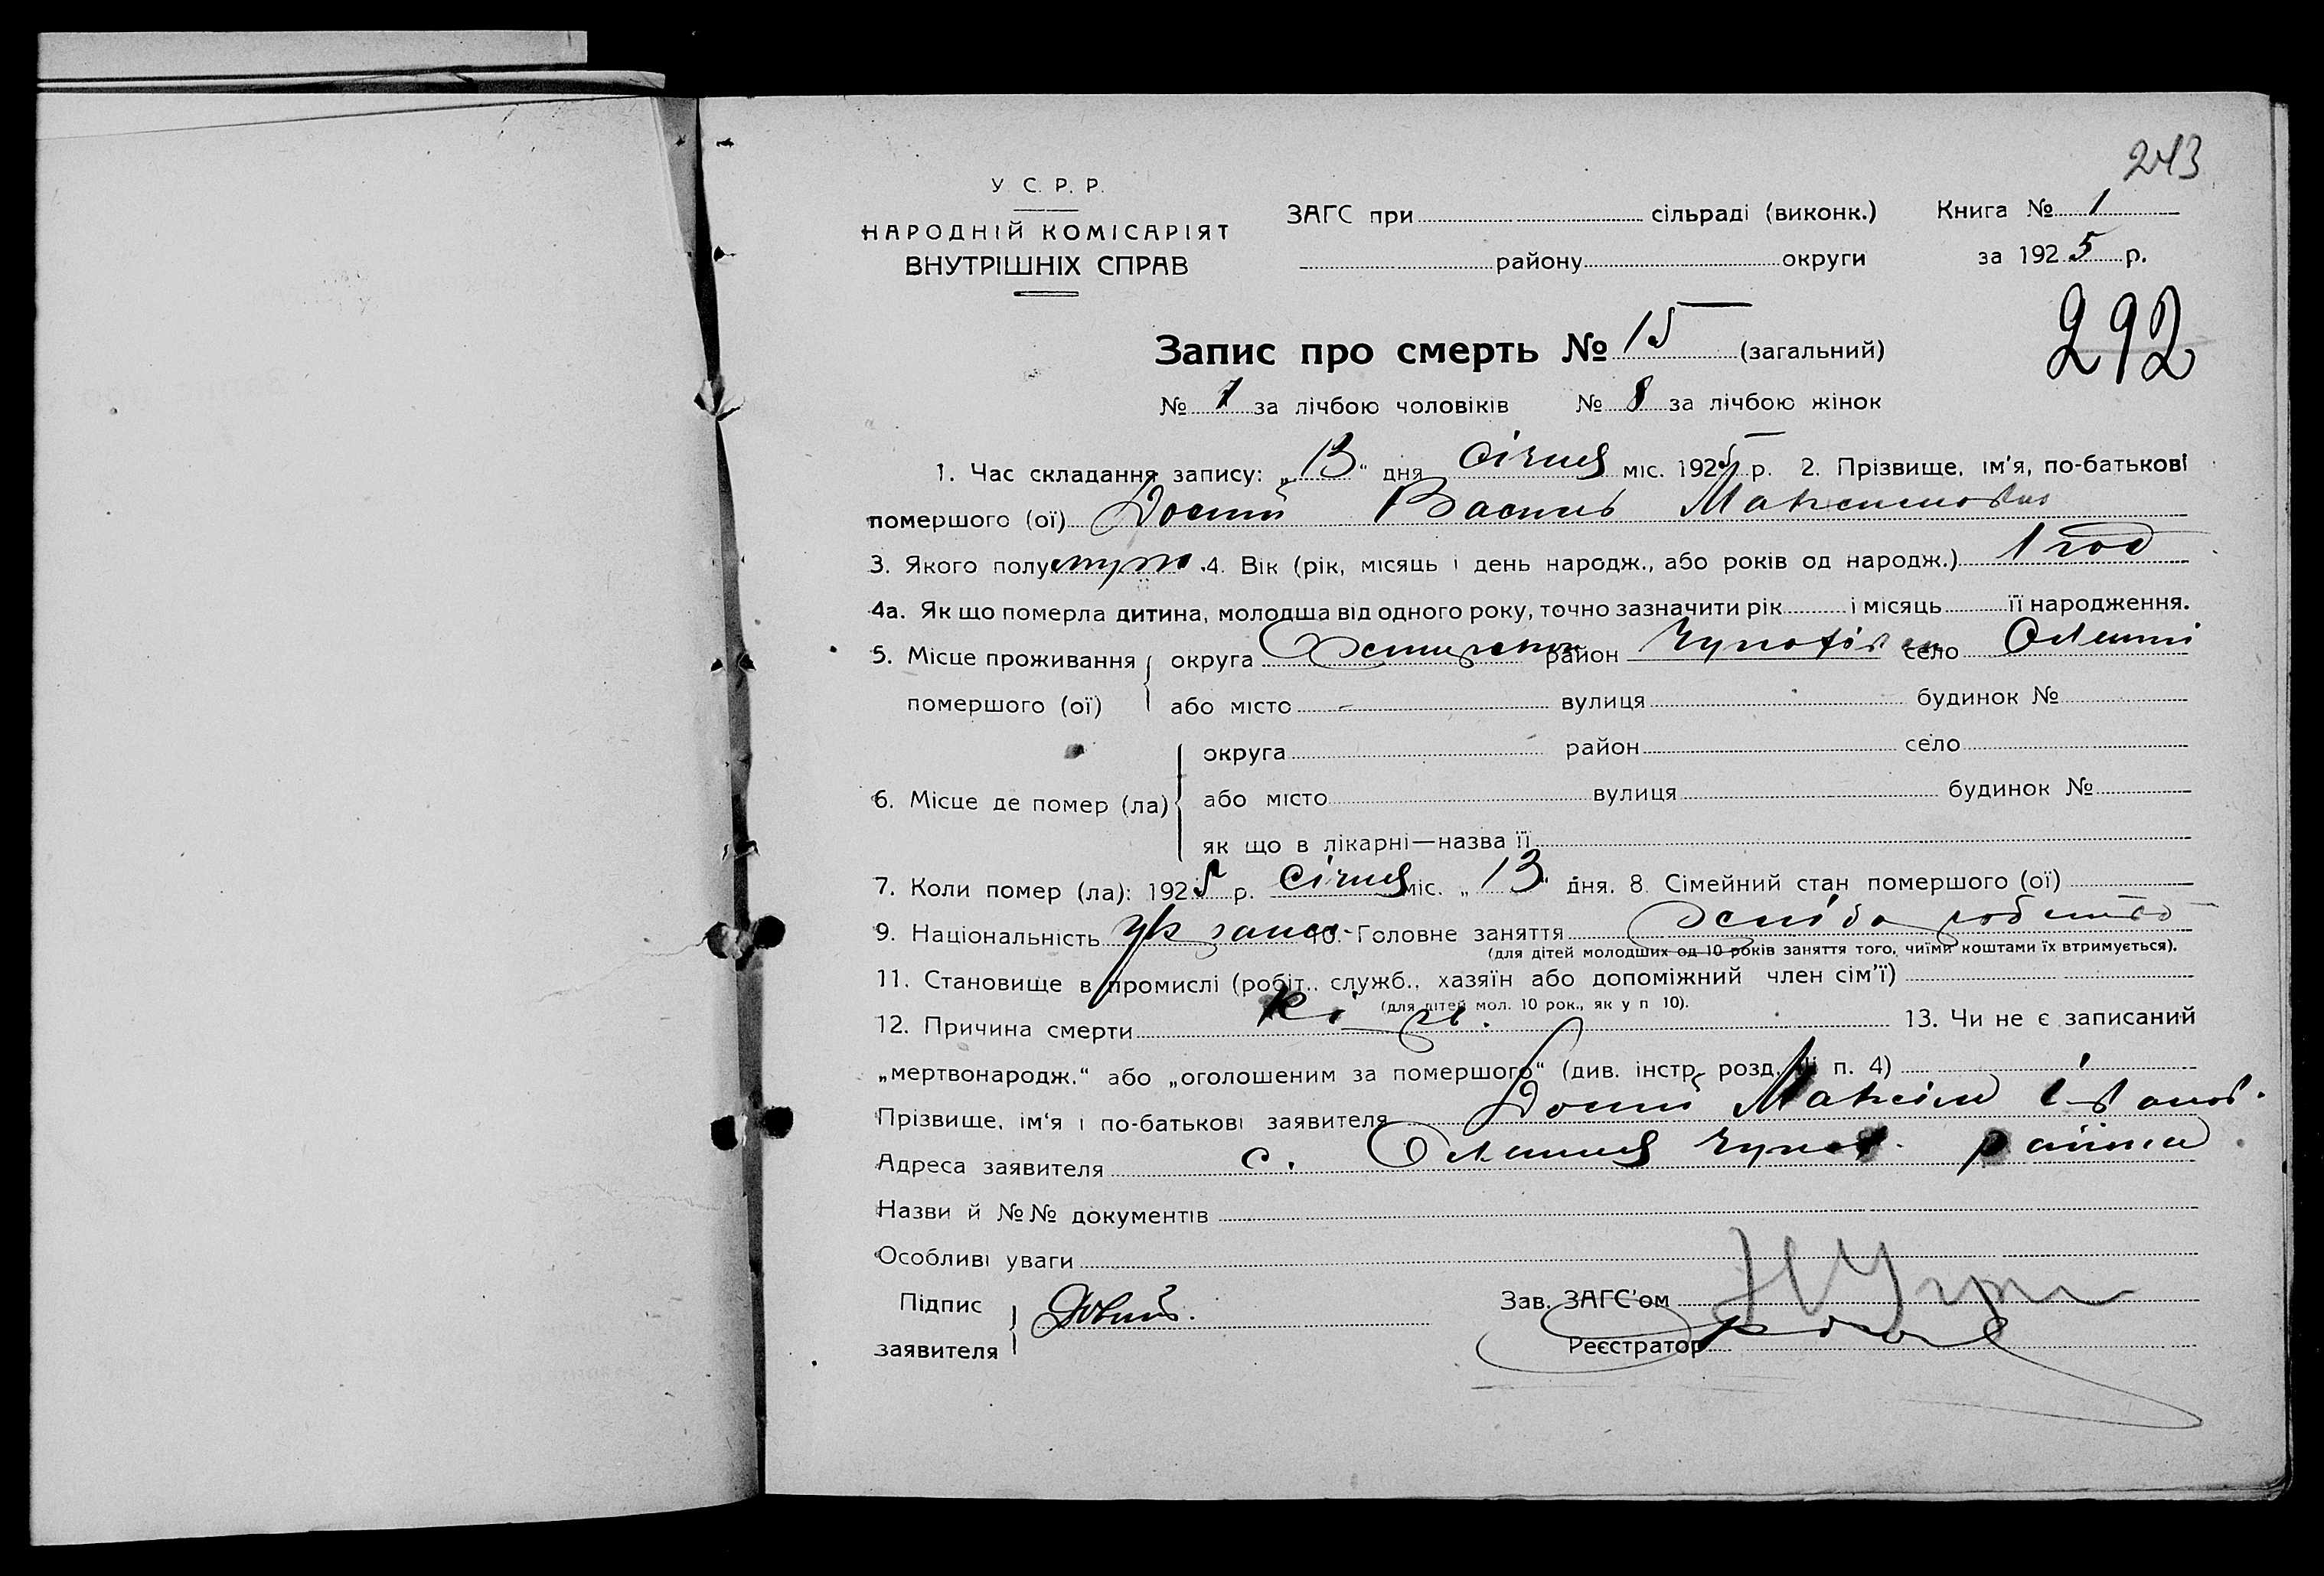 243
У С. Р. Р.
НАРОДНІЙ КОМІСАРІЯТ
ВНУТРІШНІХ СПРАВ
ЗАГС при сільраді (виконк.) Книга № 1
району округи за 1925 р.
292
Запис про смерть № 15 (загальний)
№ 7 за лічбою чоловіків № 8 за лічбою жінок
1. Час складання запису: „13“ дня січня міс. 1925 р. 2. Прізвище, ім'я, по-батькові
помершого (ої) Василь Максимович
3. Якого полу муж. 4. Вік (рік, місяць і день народж., або років од народж.) 1 год
4а. Як що померла дитина, молодша від одного року, точно зазначити рік і місяць її народження.
5. Місце проживання округа район село
помершого (ої) або місто вулиця будинок №
округа район село
6. Місце де помер (ла) або місто вулиця будинок №
як що в лікарні—назва її
7. Коли помер (ла): 1925 р. січня міс. „13“ дня. 8. Сімейний стан помершого (ої)
9. Національність 10. Головне заняття
(для дітей молодших од 10 років заняття того, чиїми коштами їх втримується).
11. Становище в промислі (робіт.. служб., хазяїн або допоміжний член сім'ї)
(для дітей мол. 10 рок., як у п 10).
12. Причина смерти кір. 13. Чи не є записаний
„мертвонародж.“ або „оголошеним за помершого“ (див. інстр. розд. п. 4)
Прізвище, ім'я і по-батькові заявителя Максім Іванов.
Адреса заявителя с. района
Назви й №№ документів
Особливі уваги
Підпис
заявителя
Зав. ЗАГС'ом
Реєстратор